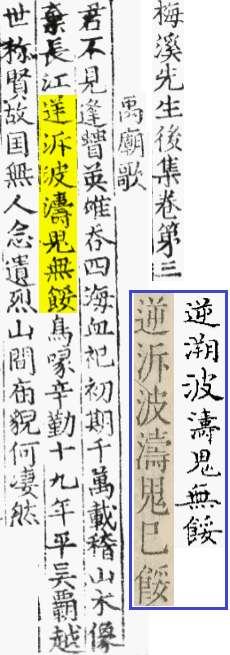 梅溪先生後集卷第三
禹廟歌
君不見逢瞽英雄吞四海血祀初期千萬載稽山木像
棄長江逆泝波濤鬼無餒鳥喙辛勤十九年平吳覇越
世称賢故国無人念遺烈山間庙貌何凄然
逆溯波濤鬼無餒
逆泝波濤鬼已餒